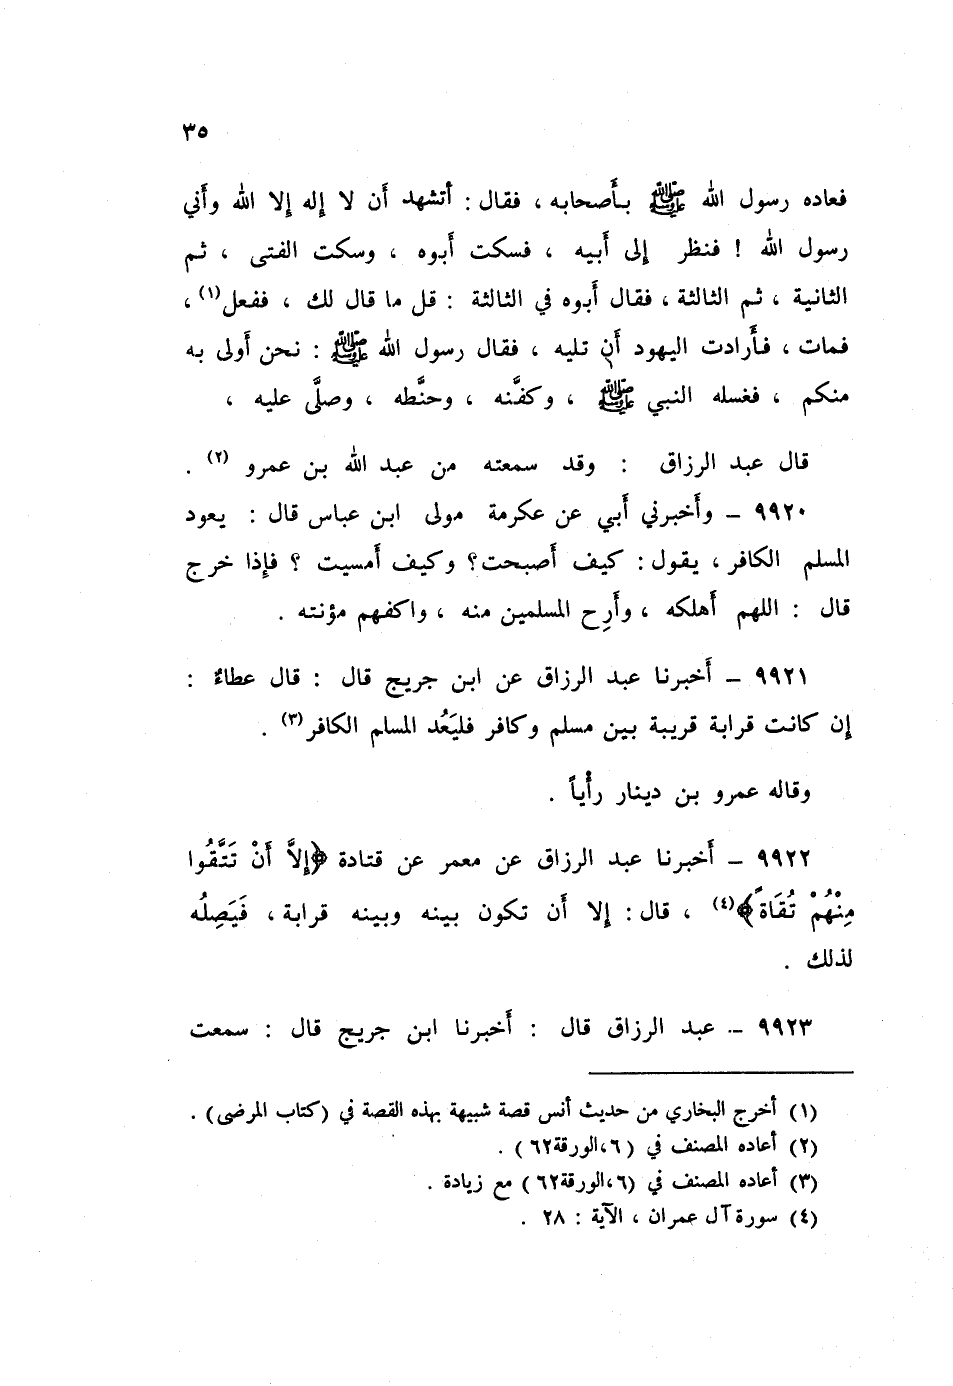 ٣٥
فعاده رسول الله ﷺ بأصحابه ، فقال : أتشهد أن لا إله إلا الله وأني
رسول الله ! فنظر إلى أبيه ، فسكت أبوه ، وسكت الفتى ، ثم
الثانية ، ثم الثالثة ، فقال أبوه في الثالثة : قل ما قال لك ، ففعل(١) ،
فمات ، فأرادت اليهود أن تليه ، فقال رسول الله ﷺ : نحن أولى به
منكم ، فغسله النبي ﷺ ، وكفَّنه ، وحنَّطه ، وصلَّى عليه ،
قال عبد الرزاق : وقد سمعته من عبد الله بن عمرو (٢) .
٩٩٢٠ - وأخبرني أبي عن عكرمة مولى ابن عباس قال : يعود
المسلم الكافر ، يقول : كيف أصبحت؟ وكيف أمسيت ؟ فإذا خرج
قال : اللهم أهلكه ، وأرِح المسلمين منه ، واكفهم مؤنته .
٩٩٢١ - أخبرنا عبد الرزاق عن ابن جريج قال : قال عطاءٌ :
إن كانت قرابة قريبة بين مسلم وكافر فليَعُد المسلم الكافر(٣) .
وقاله عمرو بن دينار رأْياً .
٩٩٢٢ - أخبرنا عبد الرزاق عن معمر عن قتادة ﴿إِلاَّ أَنْ تَتَّقُوا
مِنْهُمْ تُقَاةً﴾(٤) ، قال : إلا أن تكون بينه وبينه قرابة ، فَيَصِلُه
لذلك .
٩٩٢٣ - عبد الرزاق قال : أخبرنا ابن جريج قال : سمعت
(١) أخرج البخاري من حديث أنس قصة شبيهة بهذه القصة في (كتاب المرضى) .
(٢) أعاده المصنف في (٦،الورقة٦٢) .
(٣) أعاده المصنف في (٦،الورقة٦٢) مع زيادة .
(٤) سورة آل عمران ، الآية : ٢٨ .